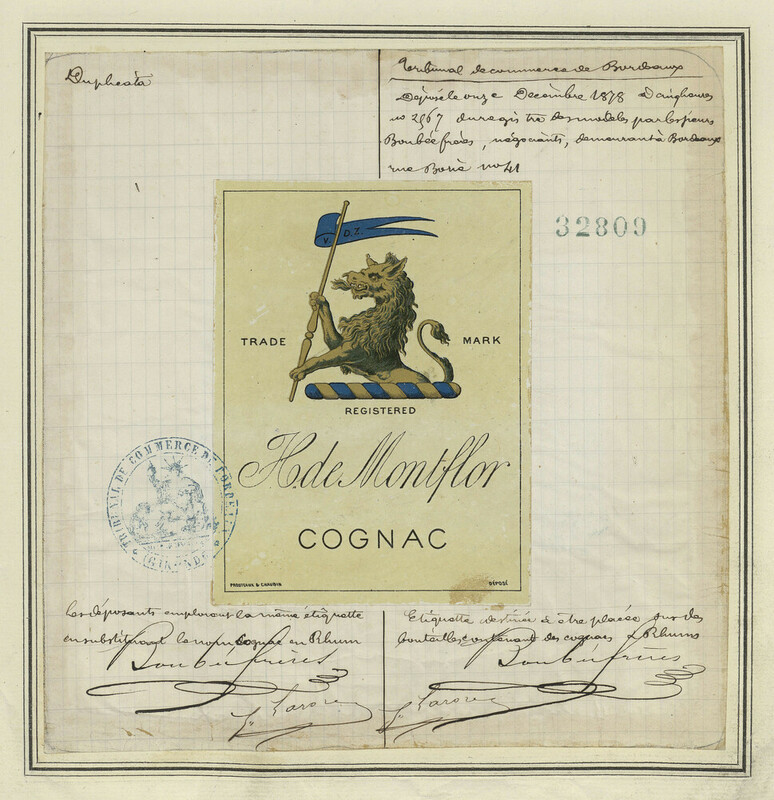 Duplicata
Tribunal de commerce de Bordeaux
Déposé le onze Décembre 1878 à cinq heures
no 2967 du registre des modèles par les sieurs
Boubée frères, négociants, demeurant à Bordeaux
rue Borie no 41
32809
V.D.Z.
TRADE MARK
REGISTERED
H. de Montflor
COGNAC
PRESTEAUX & CHAUBIN
DÉPOSÉ
TRIBUNAL DE COMMERCE DE BORDEAUX
GIRONDE
Les déposants emploieront la même étiquette
en substituant le nom cognac en Rhum
Boubée frères
Etiquette destinée à être placée sur des
bouteilles contenant des cognacs & Rhums
Boubée frères